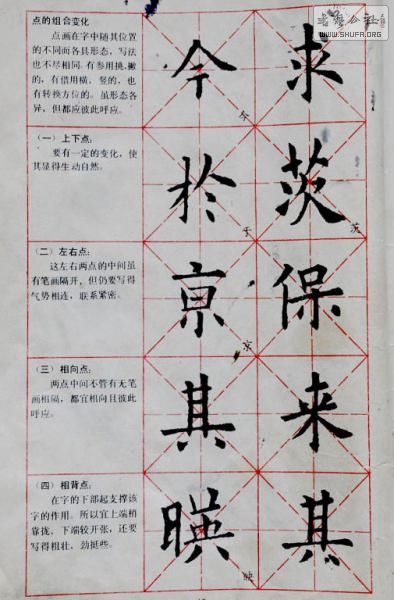 WWW.SHUFA.ORG
点的组合变化
点画在字中随其位置
的不同而各具形态，写法
也不尽相同。有参用挑、撇
的，有借用横、竖的，也
有转换方位的。虽形态各
异，但都应彼此呼应。
今 求
今
（一）上下点：
要有一定的变化，使
其显得生动自然。
於 茨
于 茨
（二）左右点：
这左右两点的中间虽
有笔画隔开，但仍要写得
气势相连，联系紧密。
亰 保
京
（三）相向点：
两点中间不管有无笔
画相隔，都宜相向且彼此
呼应。
其 来
（四）相背点：
在字的下部起支撑该
字的作用。所以宜上端稍
靠拢，下端较开张，还要
写得粗壮、劲挺些。
暎 其
映